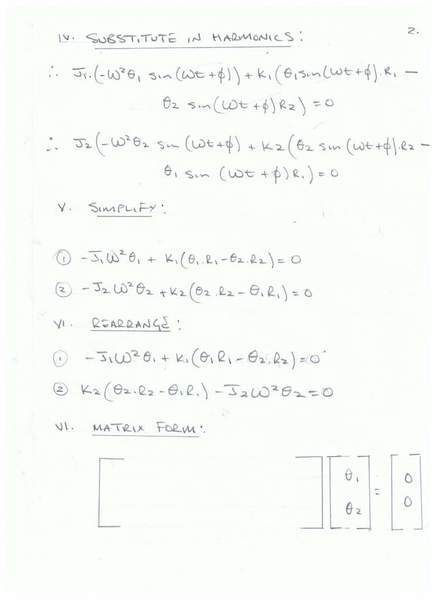 2.
iv. SUBSTITUTE IN HARMONICS:
∴ J₁.(-ω²θ₁ sin(ωt+φ)) + K₁(θ₁sin(ωt+φ).R₁ –
θ₂ sin(ωt+φ)R₂) = 0
∴ J₂(-ω²θ₂ sin(ωt+φ) + K₂(θ₂ sin(ωt+φ).R₂ –
θ₁ sin (ωt+φ)R₁) = 0
v. SIMPLIFY:
① -J₁ω²θ₁ + K₁(θ₁.R₁-θ₂.R₂) = 0
② -J₂ω²θ₂ + K₂(θ₂.R₂ - θ₁R₁) = 0
vi. REARRANGE:
① -J₁ω²θ₁ + K₁(θ₁R₁-θ₂.R₂) = 0
② K₂(θ₂.R₂-θ₁R₁) - J₂ω²θ₂ = 0
vi. MATRIX FORM:
[ ] [θ₁ θ₂] = [0 0]